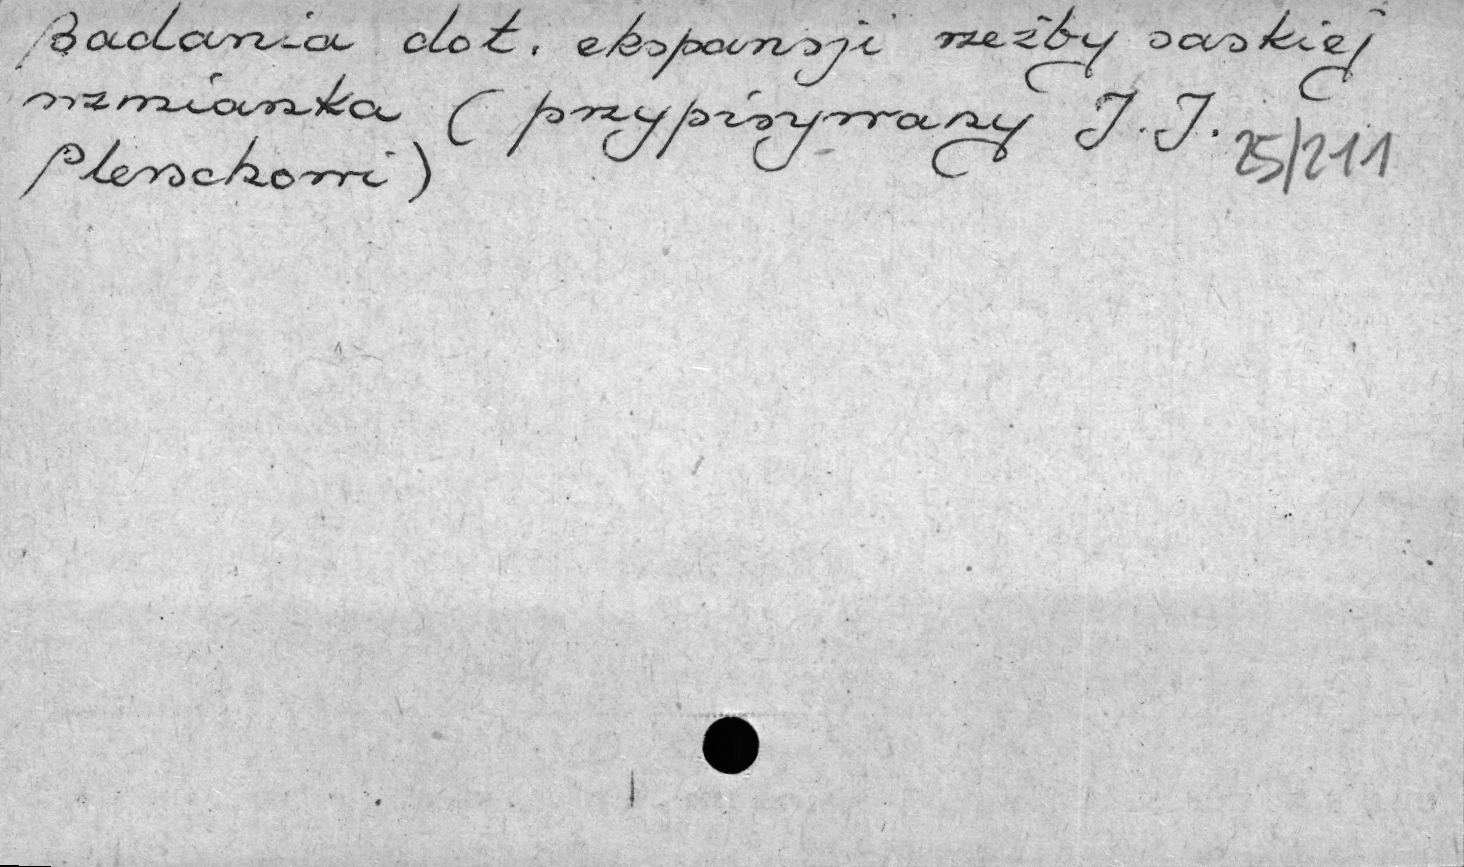 Badania dot. ekspansji rzeźby saskiej
wzmianka ( przypisywany J. J.
Plerschowi)
25/211